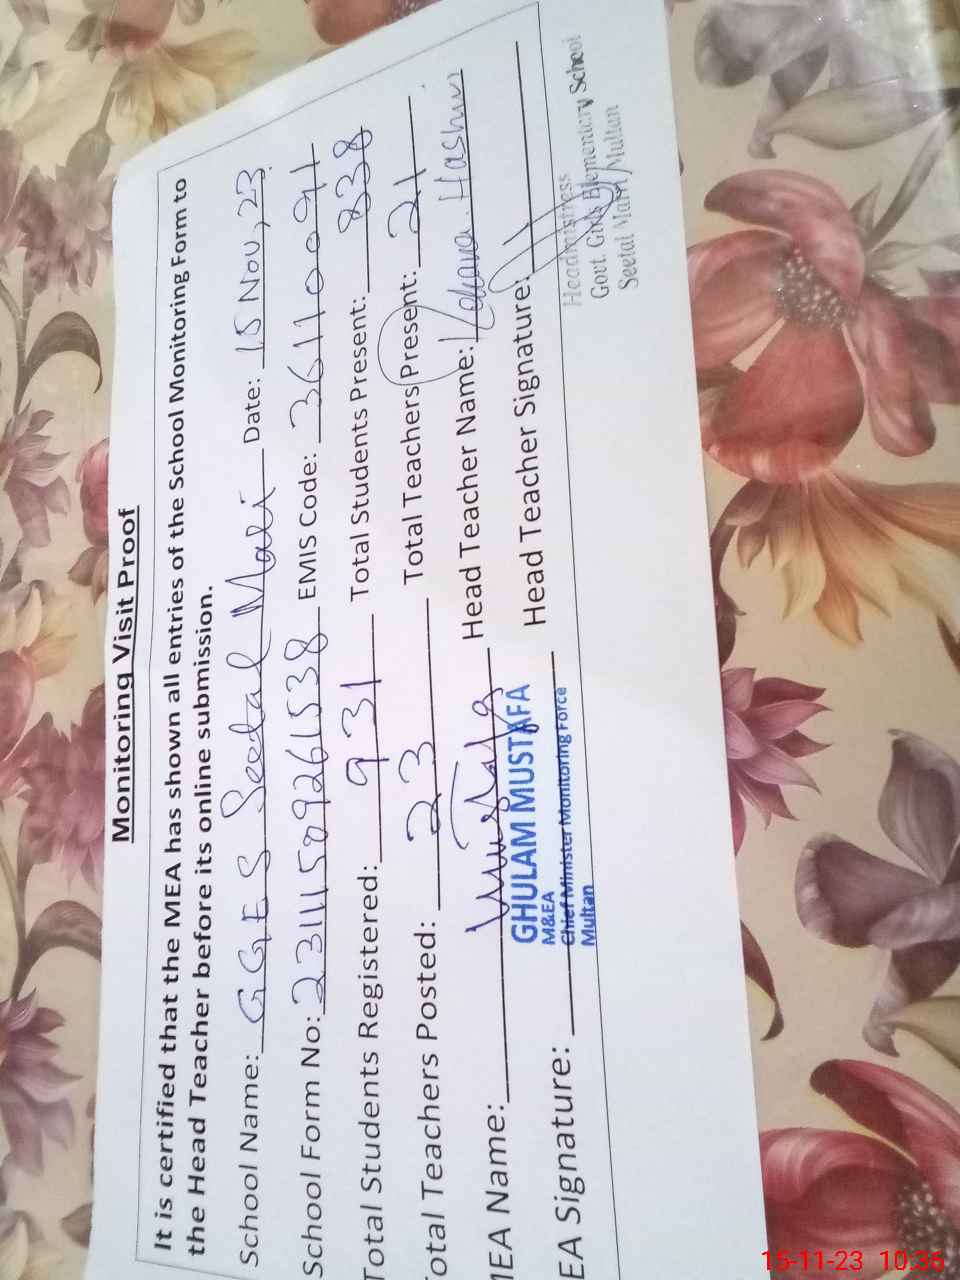 Monitoring Visit Proof
It is certified that the MEA has shown all entries of the School Monitoring Form to
the Head Teacher before its online submission.
School Name: GGES Seetal Mari Date: 15 Nov, 23
School Form No: 23111509261538 EMIS Code: 36110091
Total Students Registered: 931 Total Students Present: 838
Total Teachers Posted: 23 Total Teachers Present: 21
MEA Name: Mustafa Head Teacher Name: Hashmi
EA Signature: Head Teacher Signature:
GHULAM MUSTAFA
M&EA
Chief Minister Monitoring Force
Multan
Headmistress
Govt. Girls Elementary School
Seetal Mari Multan
15-11-23 10:36